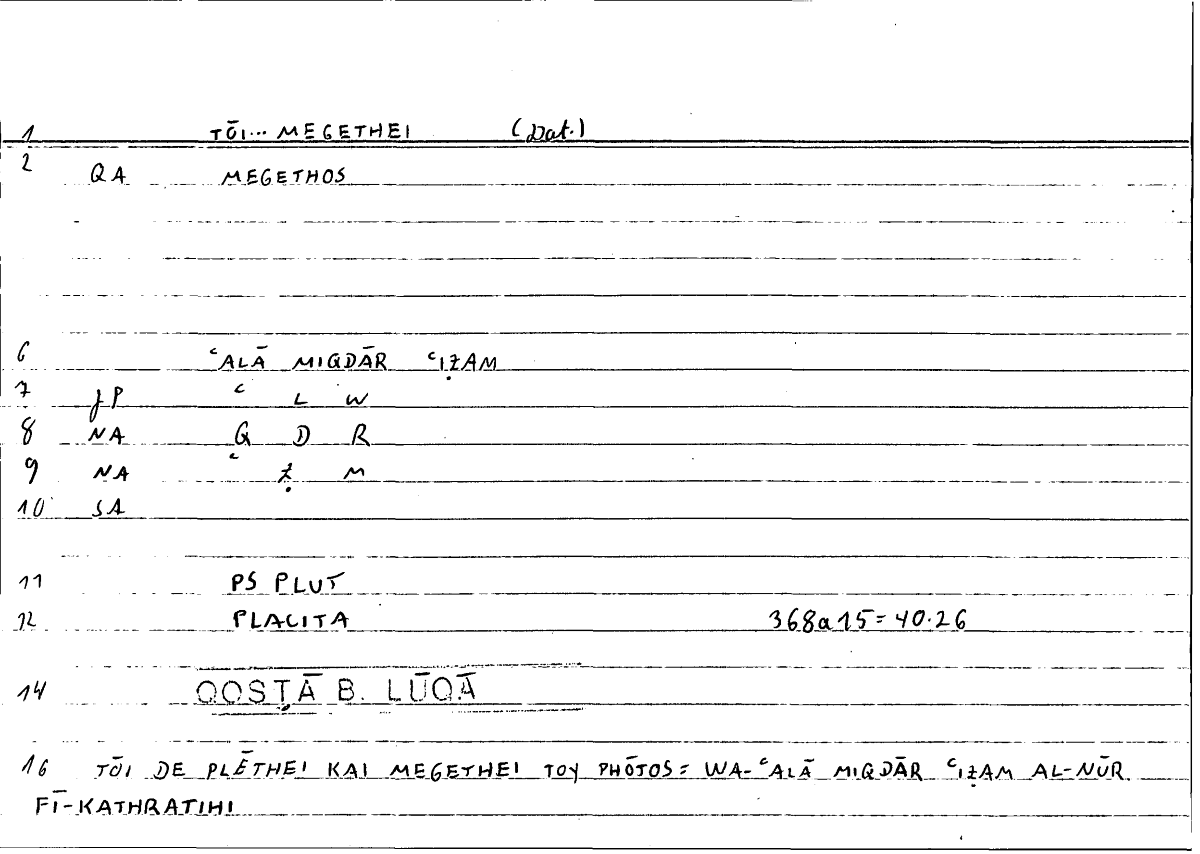 1 TŌI... MEGETHEI (Dat.)
2 QA MEGETHOS
6 ʿALĀ MIQDĀR ʿIẒAM
7 JP ʿ L W
8 NA Q D R
9 NA ʿ Ẓ M
10 SA
11 PS PLUT
12 PLACITA 368a15=40.26
14 QOSṬĀ B. LŪQĀ
16 TŌI DE PLĒTHEI KAI MEGETHEI TOY PHŌTOS= WA-ʿALĀ MIQDĀR ʿIẒAM AL-NŪR
FĪ-KATHRATIHI